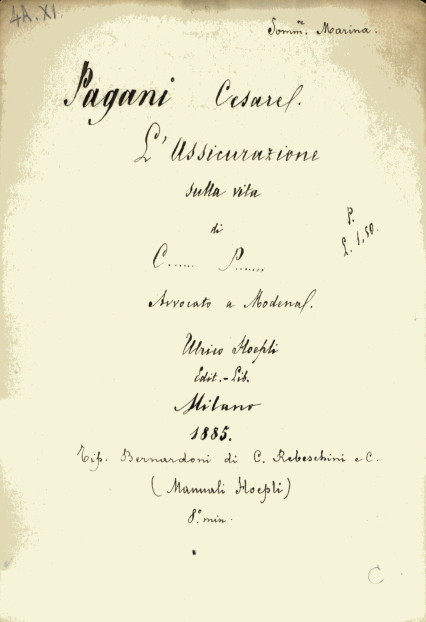 4A. XI.
Somm.ne Marina.
Pagani Cesare.
L'Assicurazione
sulla vita
di
P.
L. 1,50.
C...... P......
Avvocato a Modena.
Ulrico Hoepli
Edit.-Lib.
Milano
1885.
Tip. Bernardoni di C. Rebeschini e C.
(Manuali Hoepli)
8.° min.
C